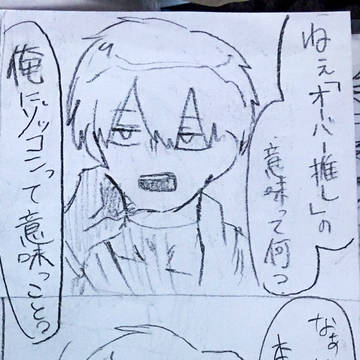 ねぇ「オーバー推し」の
意味って何?
俺にゾッコンって意味っこと?
なぁ